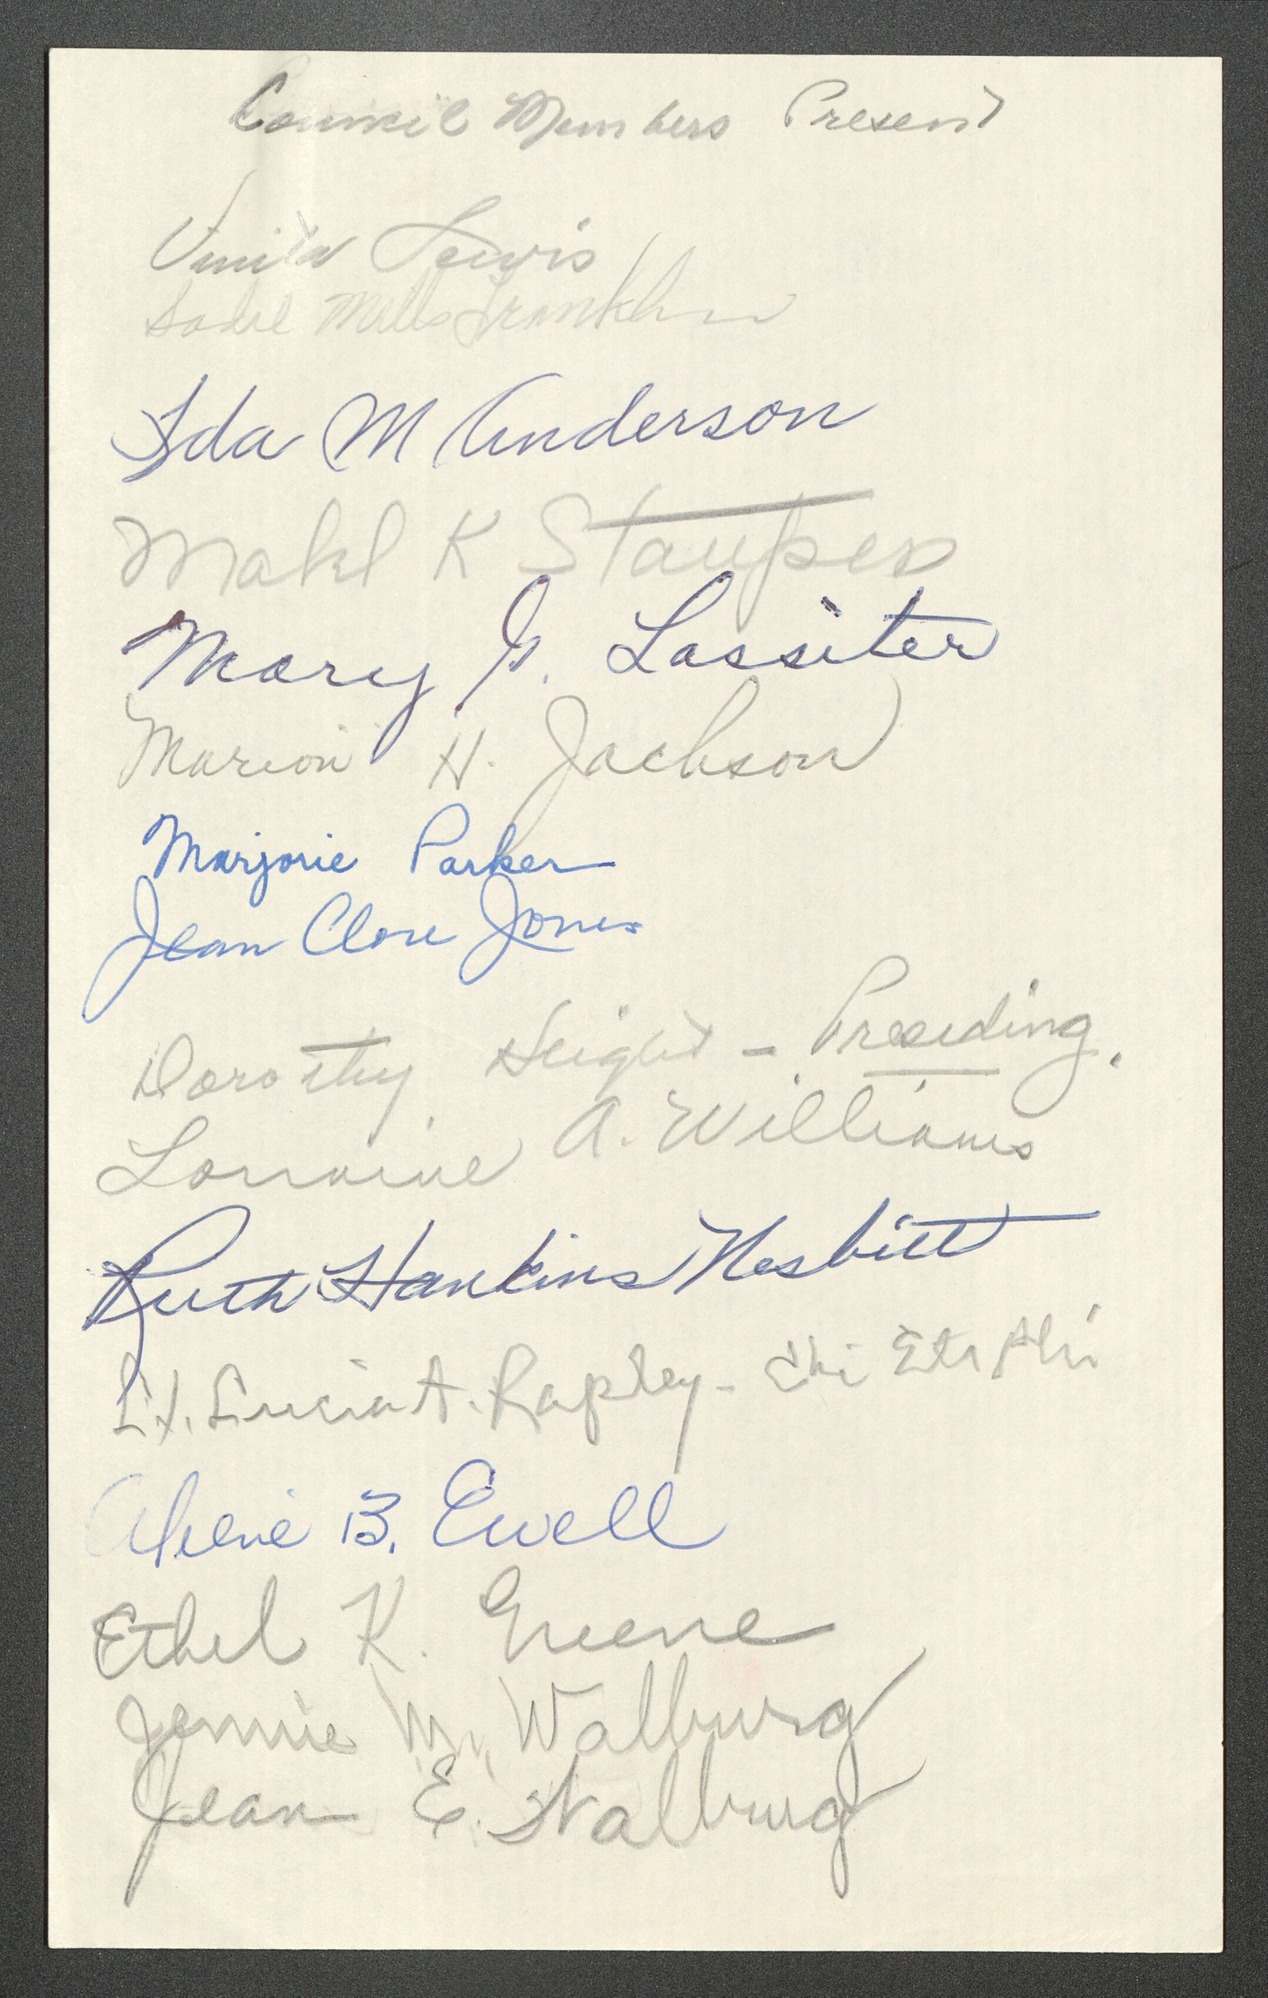 Council Members Present
Vinita Lewis
Sadie Mills Franklin
Ida M Anderson
Mabel K Staupers
Mary G. Lassiter
Marion H. Jackson
Marjorie Parker
Jean Clore Jones
Dorothy Height - Presiding.
Lorraine A. Williams
Ruth Hankins Nesbitt
Lt. Lucia A. Rapley - Chi Eta Phi
Arlene B. Ewell
Ethel K. Greene
Jennie M. Walburg
Jean E. Walburg